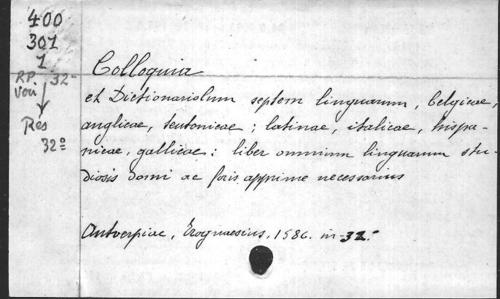 400
301
1
R.P. 32-
Voir
Res
32º
Colloquia
et Dictionariolum septem linguarum, belgicae,
anglicae, teutonicae ; latinae, italicae, hispa-
nicae, gallicae : liber omnium linguarum stu-
diosis domi ac foris apprime necessarius
Antverpiae, Trognaesius, 1586. in-32.-